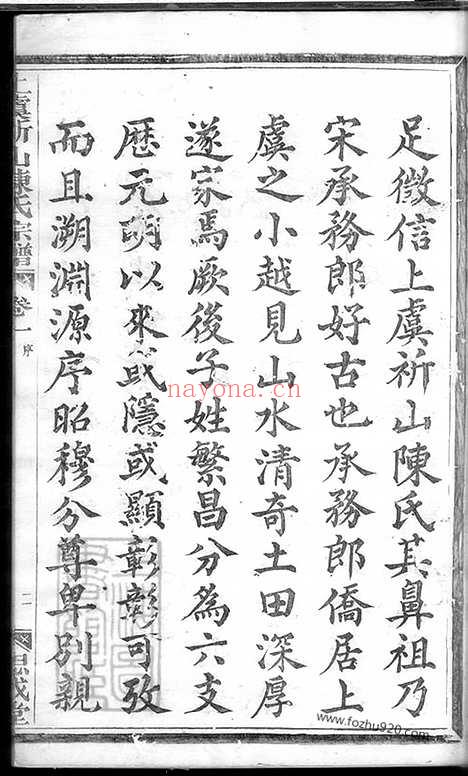 足徵信上虞祈山陳氏其鼻祖乃
宋承務郎好古也承務郎僑居上
虞之小越見山水清奇土田深厚
遂家焉厥後子姓繁昌分為六支
歷元明以來或隱或顯彰彰可攷
而且溯淵源序昭穆分尊卑別親
上虞祈山陳氏宗譜 卷一 序 二 思成堂
nayona.cn
www.fozhu920.com